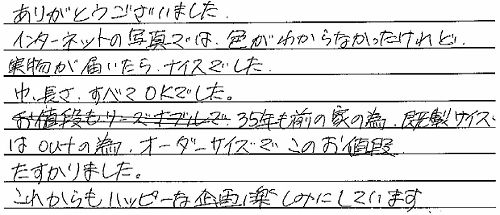 ありがとうございました.
インターネットの写真では、色がわからなかったけれど、
実物が届いたら、ナイスでした.
巾、長さ、すべてOKでした。
お値段もリーズナブルで 35年も前の家の為、既製サイズ
は outの為、オーダーサイズで このお値段
たすかりました。
これからもハッピーな企画楽しみにしています